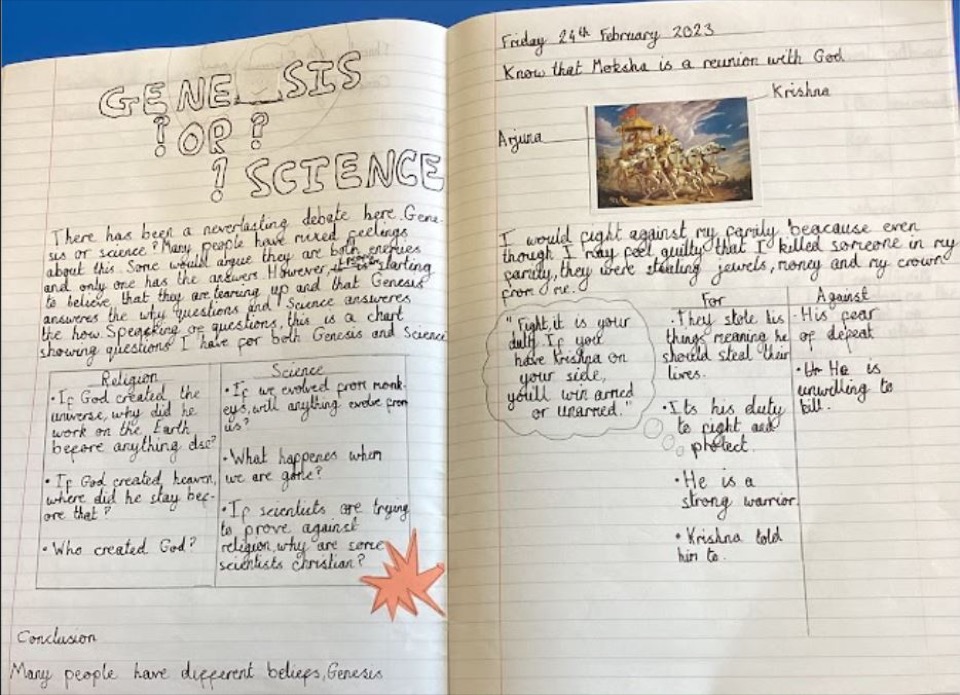 GENE__SIS
? OR ?
? SCIENCE
There has been a neverlasting debate here. Gene-
sis or science? Many people have mixed feelings
about this. Some would argue they are both enemies
and only one has the answers. However, starting
to believe that they are tearing up and that Genesis
answeres the why questions and Science answeres
the how. Speacking of questions, this is a chart
showing questions I have for both Genesis and Science
Religion
• If God created the
universe, why did he
work on the Earth
before anything else?
• If God created heaven,
where did he stay bef-
ore that?
• Who created God?
Science
• If we evolved from monk-
eys, will anything evolve from
us?
• What happenes when
we are gone?
• If scientists are trying
to prove against
religion, why are some
scientists christian?
Conclusion
Many people have different beliefs, Genesis
Friday 24th February 2023
Know that Moksha is a reunion with God
Krishna
Arjuna
I would fight against my family beacause even
though I may feel guilty that I killed someone in my
family, they were stealing jewels, money and my crown
from me.
"Fight, it is your
duty. If you
have Krishna on
your side,
you'll win armed
or unarmed."
For
• They stole his
things meaning he
should steal their
lives.
• Its his duty
to fight and
protect.
• He is a
strong warrior.
• Krishna told
him to.
Against
• His fear
of defeat
• He is
unwilling to
kill.